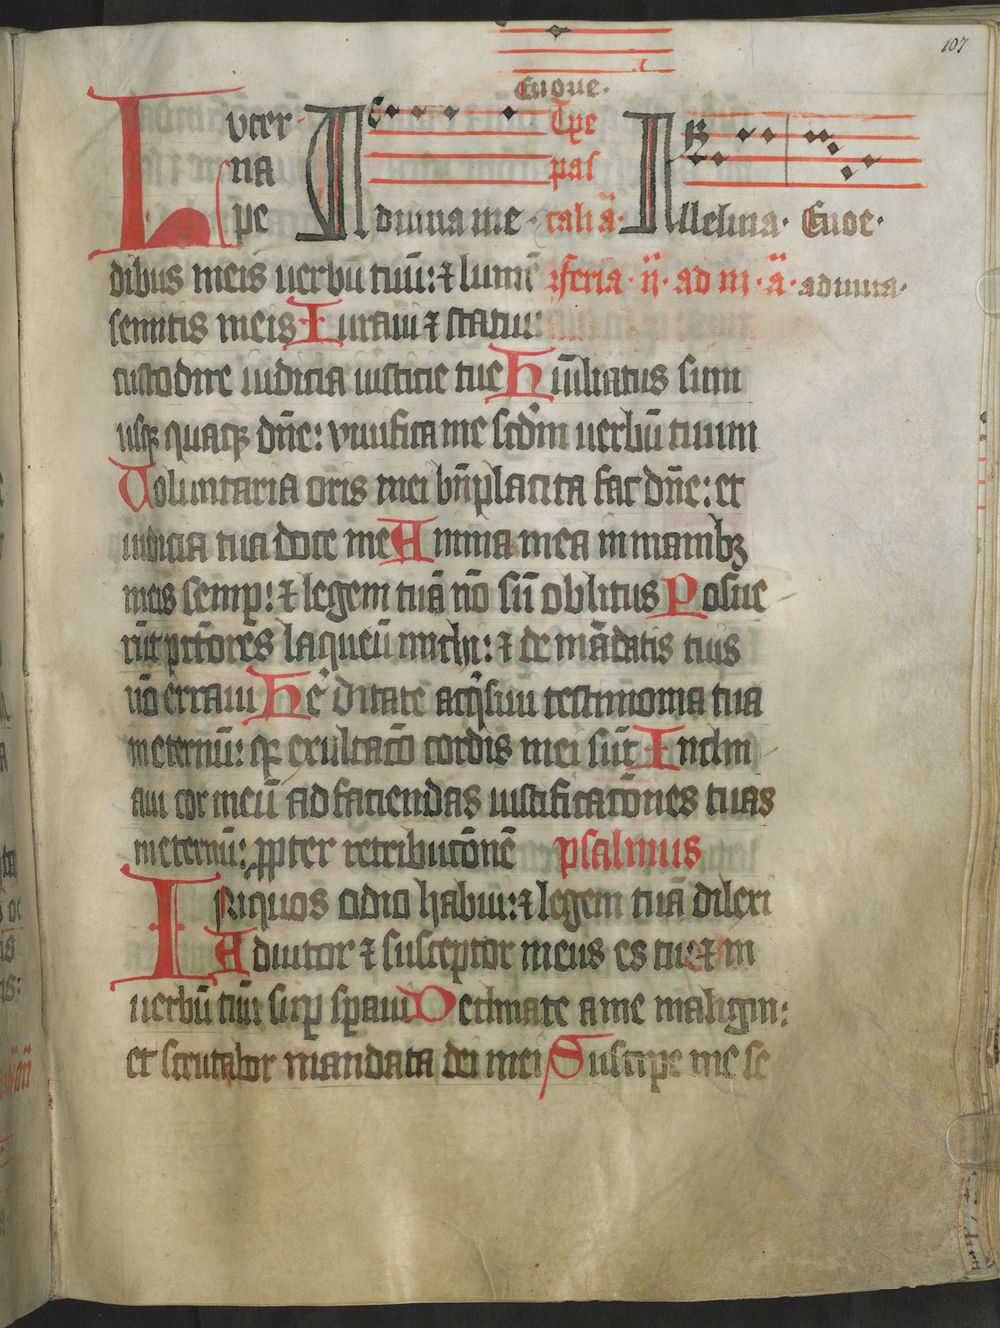 107
Euoue.
Lucer Tpe
na pas
pe Adiuua me. cali ā. Alleluia. Euoe.
dibus meis uerbū tuū: ⁊ lumē feria. ii. ad m. ā. adiuua.
semitis meis Iuraui ⁊ statui:
custodire iudicia iusticie tue Humiliatus sum
usq; quaq; dn̄e: viuifica me scd̄m uerbū tuum
Voluntaria oris mei bn̄placita fac dn̄e: et
iudicia tua doce me Anima mea in manibꝫ
meis semꝑ: ⁊ legem tuā nō sū oblitus Posue
rūt pctōres laqueū michi: ⁊ de mādatis tuis
nō erraui Hēditate acq̄siui testimonia tua
in eternū: qꝛ exultatō cordis mei sūt Inclin
aui cor meū ad faciendas iustificatōnes tuas
in eternū: ꝓpter retributōnē psalmus
Iniquos odio habui: ⁊ legem tuā dilexi
Adiutor ⁊ susceptor meus es tu: ⁊ in
uerbū tuū suꝑ sꝑaui Declinate a me malign:
et scrutabor mandata dei mei Suscipe me se